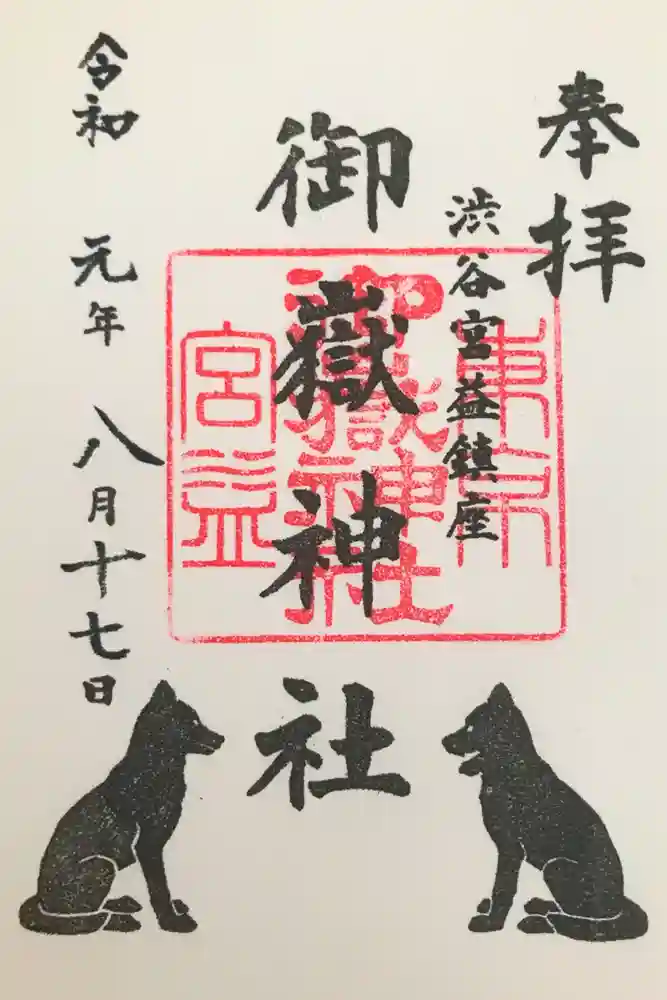 奉拝
渋谷宮益鎮座
御嶽神社
東京
御嶽神社
宮益
令和元年八月十七日